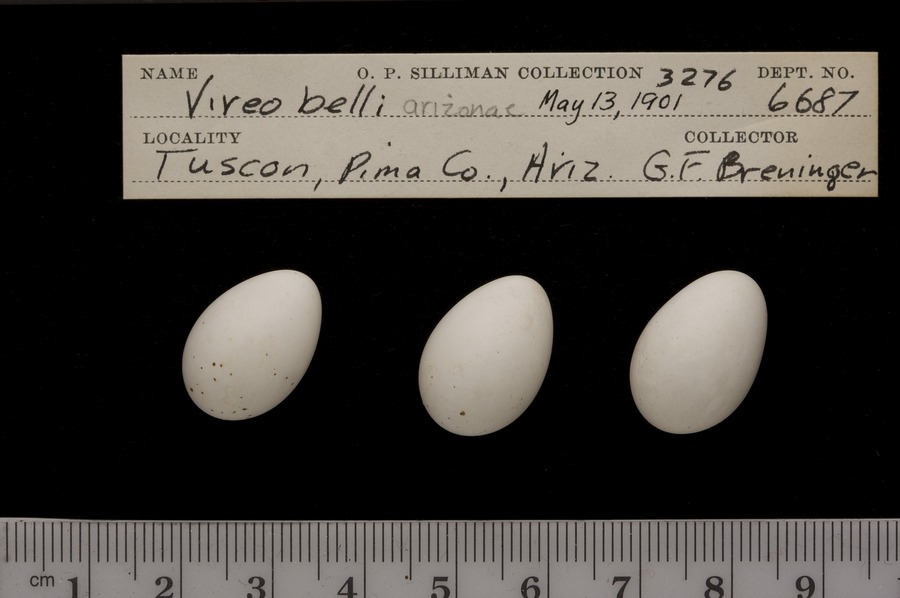 NAME O. P. SILLIMAN COLLECTION 3276 DEPT. NO.
Vireo belli arizonae May 13, 1901 6687
LOCALITY COLLECTOR
Tuscon, Pima Co., Ariz. G.F Breninger
cm 1 2 3 4 5 6 7 8 9